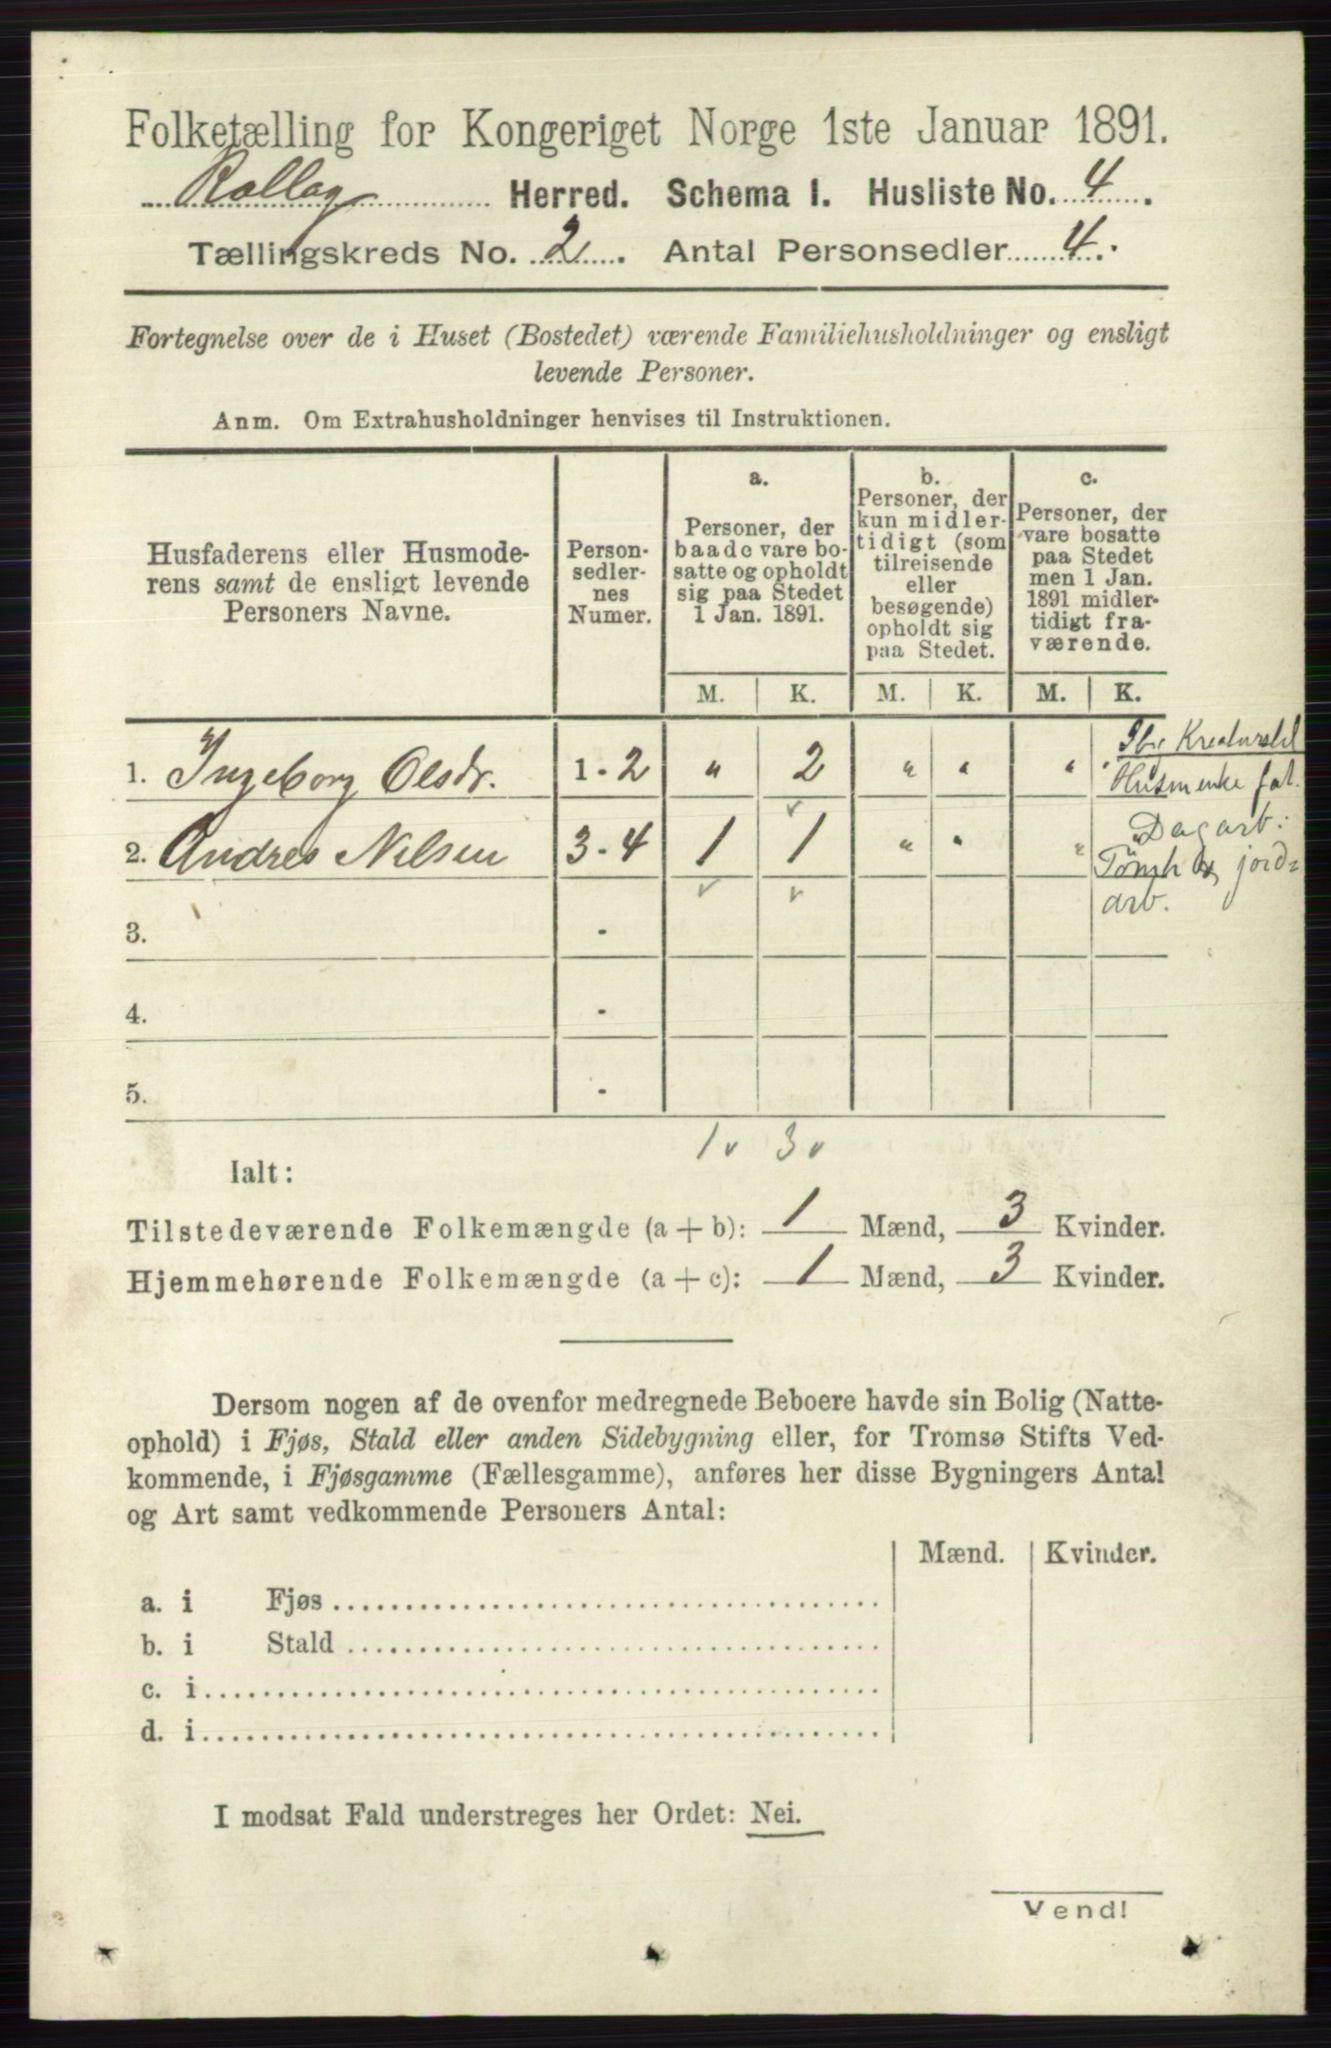 Folketælling for Kongeriget Norge 1ste Januar 1891.
Rollag Herred. Schema I. Husliste No. 4.
Tællingskreds No. 2. Antal Personsedler 4.
Fortegnelse over de i Huset (Bostedet) værende Familiehusholdninger og ensligt
levende Personer.
Anm. Om Extrahusholdninger henvises til Instruktionen.
Husfaderens eller Husmode-
rens samt de ensligt levende
Personers Navne.
Person-
sedler-
nes
Numer.
a.
Personer, der
baade vare bo-
satte og opholdt
sig paa Stedet
1 Jan. 1891.
b.
Personer, der
kun midler-
tidigt (som
tilreisende
eller
besøgende)
opholdt sig
paa Stedet.
c.
Personer, der
vare bosatte
paa Stedet
men 1 Jan.
1891 midler-
tidigt fra-
værende.
M. K. M. K. M. K.
1. Ingeborg Olsdr. 1-2 " 2 " " " "
Husmenke fat.
2. Andres Nilsen 3-4 1 1 " " " "
Dagarb:
jord-
arb.
3. -
4. -
5. -
1 v 3 v
Ialt:
Tilstedeværende Folkemængde (a + b): 1 Mænd, 3 Kvinder.
Hjemmehørende Folkemængde (a + c): 1 Mænd, 3 Kvinder.
Dersom nogen af de ovenfor medregnede Beboere havde sin Bolig (Natte-
ophold) i Fjøs, Stald eller anden Sidebygning eller, for Tromsø Stifts Ved-
kommende, i Fjøsgamme (Fællesgamme), anføres her disse Bygningers Antal
og Art samt vedkommende Personers Antal:
Mænd. Kvinder.
a. i Fjøs
b. i Stald
c. i
d. i
I modsat Fald understreges her Ordet: Nei.
Vend!